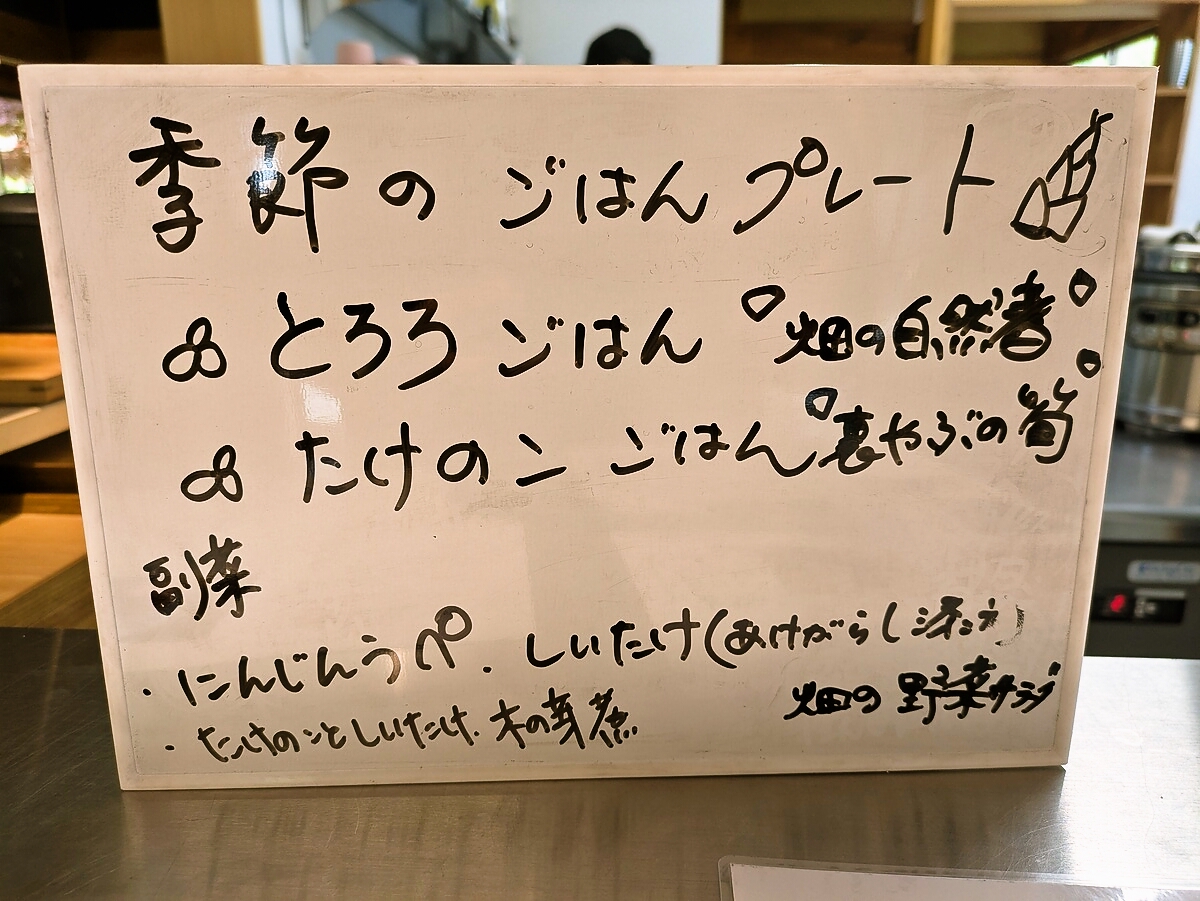 季節の ごはんプレート
とろろ ごはん 畑の自然薯
たけのこ ごはん 裏やぶの筍
副菜
・にんじんラペ ・しいたけ(あけがらし添え)
・たけのことしいたけ 木の芽煮 畑の野菜サラダ